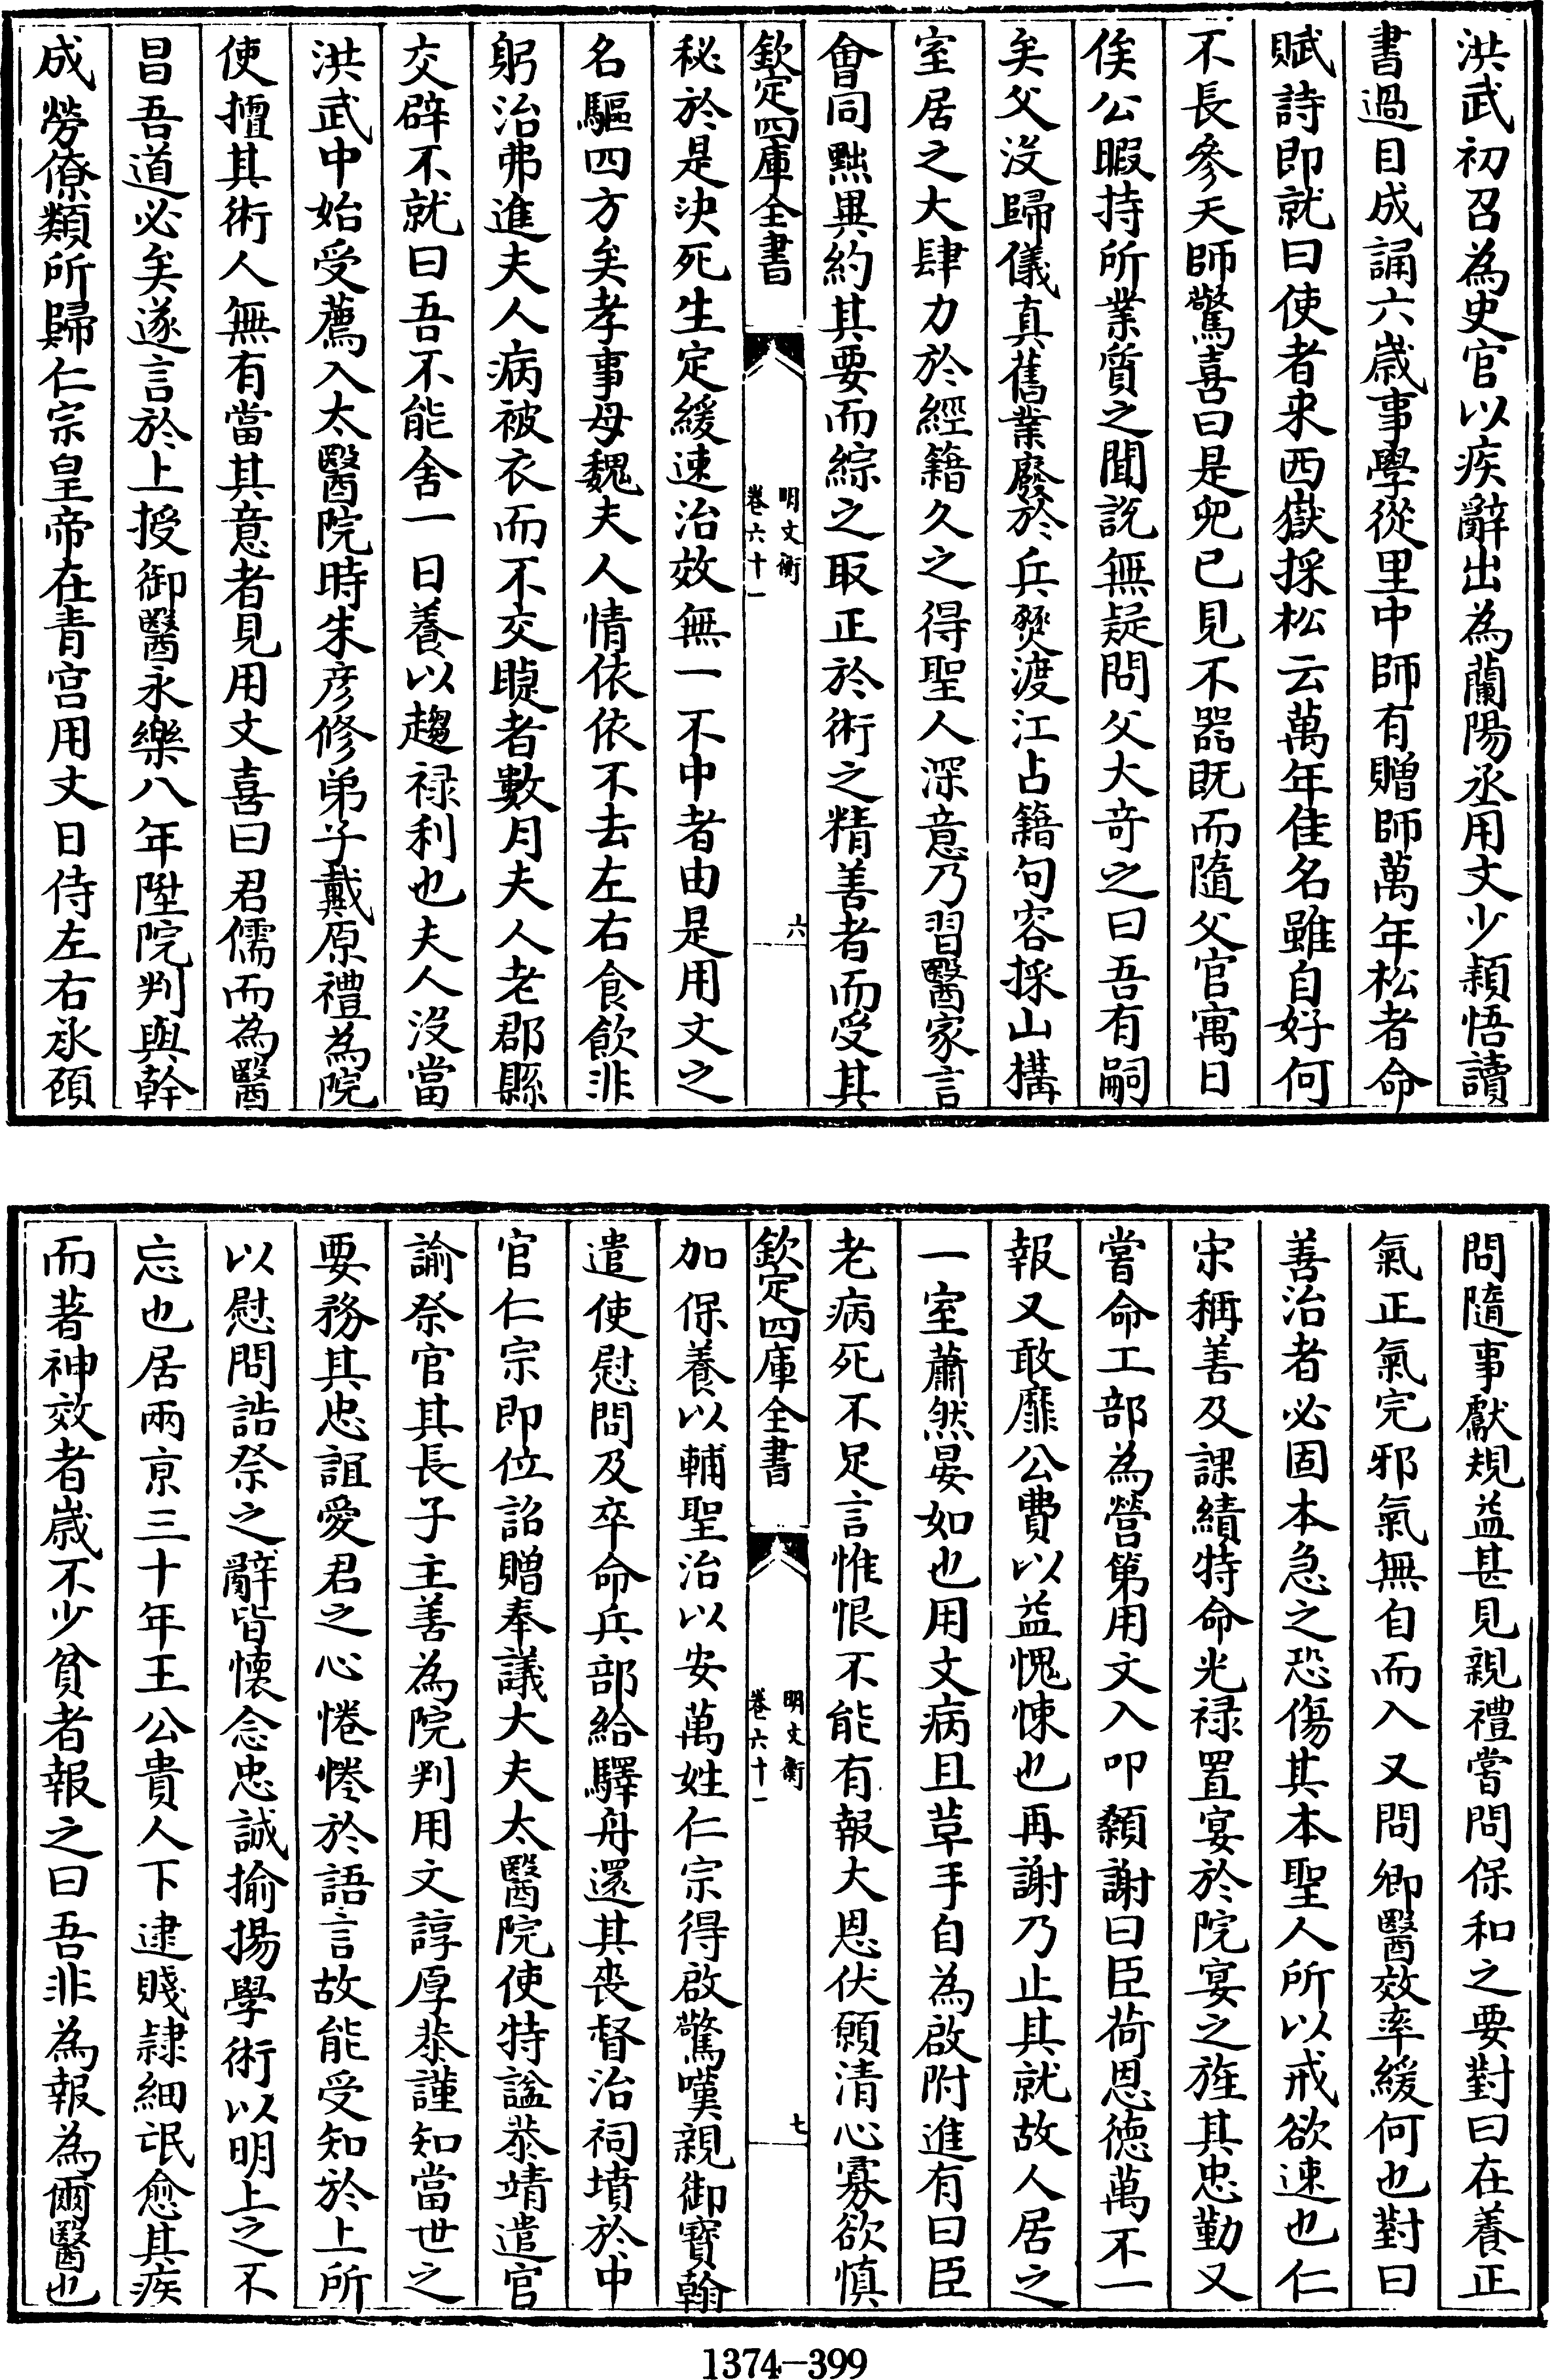 洪武初召為史官以疾辭出為蘭陽丞用文少穎悟讀
書過目成誦六歲事學從里中師有贈師萬年松者命
賦詩即就曰使者来西嶽採松云萬年佳名雖自好何
不長參天師驚喜曰是兒已見不器既而隨父官寓日
俟公暇持所業質之聞説無疑問父大奇之曰吾有嗣
矣父没歸儀真舊業廢於兵燹渡江占籍句容採山構
室居之大肆力於經籍久之得聖人深意乃習醫家言
會同黜異約其要而綜之取正於術之精善者而受其
欽定四庫全書
明文衡
卷六十一
六
秘於是決死生定緩速治效無一不中者由是用文之
名驅四方矣孝事母魏夫人情依依不去左右食飲非
躬治弗進夫人病被衣而不交睫者數月夫人老郡縣
交辟不就曰吾不能舍一日養以趨禄利也夫人没當
洪武中始受薦入太醫院時朱彦修弟子戴原禮為院
使擅其術人無有當其意者見用文喜曰君儒而為醫
昌吾道必矣遂言於上授御醫永樂八年陞院判與幹
成勞僚類所歸仁宗皇帝在青宫用文日侍左右承頋
問隨事獻規益甚見親禮嘗問保和之要對曰在養正
氣正氣完邪氣無自而入又問卿醫效率緩何也對曰
善治者必固本急之恐傷其本聖人所以戒欲速也仁
宗稱善及課績特命光禄置宴於院宴之旌其忠勤又
嘗命工部為營第用文入叩顙謝曰臣荷恩德萬不一
報又敢靡公費以益愧悚也再謝乃止其就故人居之
一室蕭然晏如也用文病且草手自為啟附進有曰臣
老病死不足言惟恨不能有報大恩伏願清心寡欲慎
欽定四庫全書
明文衡
卷六十一
七
加保養以輔聖治以安萬姓仁宗得啟驚嘆親御寶翰
遣使慰問及卒命兵部給驛舟還其喪督治祠墳於中
官仁宗即位詔贈奉議大夫太醫院使特諡恭靖遣官
諭祭官其長子主善為院判用文諄厚恭謹知當世之
要務其忠誼愛君之心惓惓於語言故能受知於上所
以慰問誥祭之辭皆懷念忠誠揄揚學術以明上之不
忘也居兩京三十年王公貴人下逮賤隷細氓愈其疾
而著神效者歲不少貧者報之曰吾非為報為爾醫也
1374-399